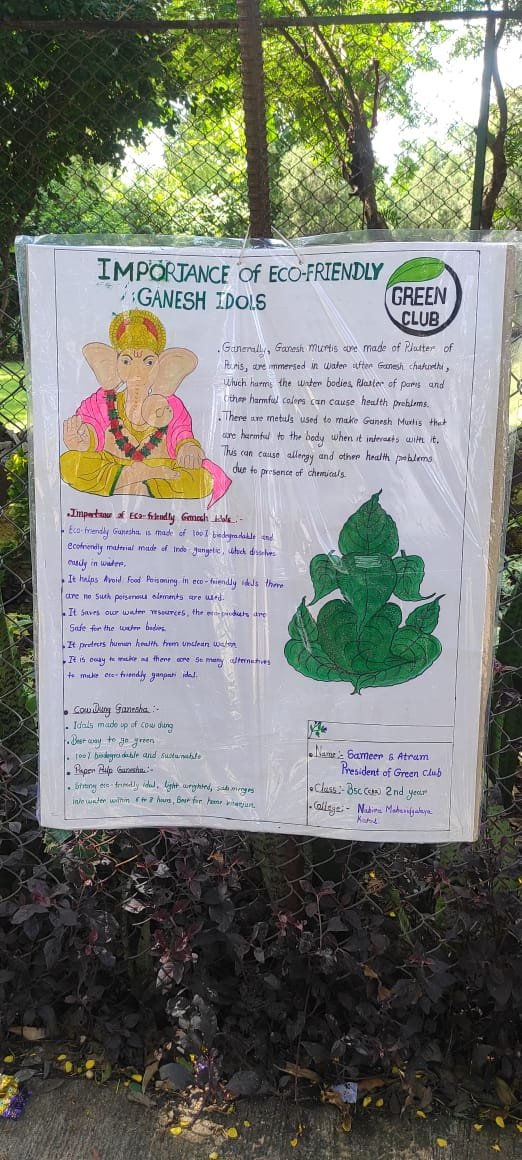 IMPORTANCE OF ECO-FRIENDLY
GANESH IDOLS
GREEN
CLUB
• Generally, Ganesh murtis are made of Plaster of
Paris, are immersed in water after Ganesh chaturthi,
which harms the water bodies, Plaster of paris and
Other harmful colors can cause health problems.
• There are metals used to make Ganesh Murtis that
are harmful to the body when it interacts with it.
This can cause allergy and other health problems
due to presence of chemicals.
• Importance of Eco-friendly Ganesh idols :-
• Eco-friendly Ganesha is made of 100% biodegradable and
ecofriendly material made of Indo-gangetic, which dissolves
easily in water.
• It helps Avoid Food Poisoning. in eco-friendly idols there
are no such poisonous elements are used.
• It saves our water resources, the eco-products are
Safe for the water bodies.
• It protects human health from unclean water.
• It is easy to make as there are so many alternatives
to make eco-friendly ganpati idol.
• Cow Dung Ganesha :-
• Idols made up of cow dung
• Best way to go green
• 100% biodegradable and sustainable
• Paper Pulp Ganesha :-
• Strong eco-friendly idol, light weighted, submerges
into water within 6 to 8 hours, Best for home visarjan.
• Name :- Sameer S Atram
President of Green Club
• Class :- Bsc (CBA) 2nd year
• College :- Nabira Mahavidyalaya
Katol